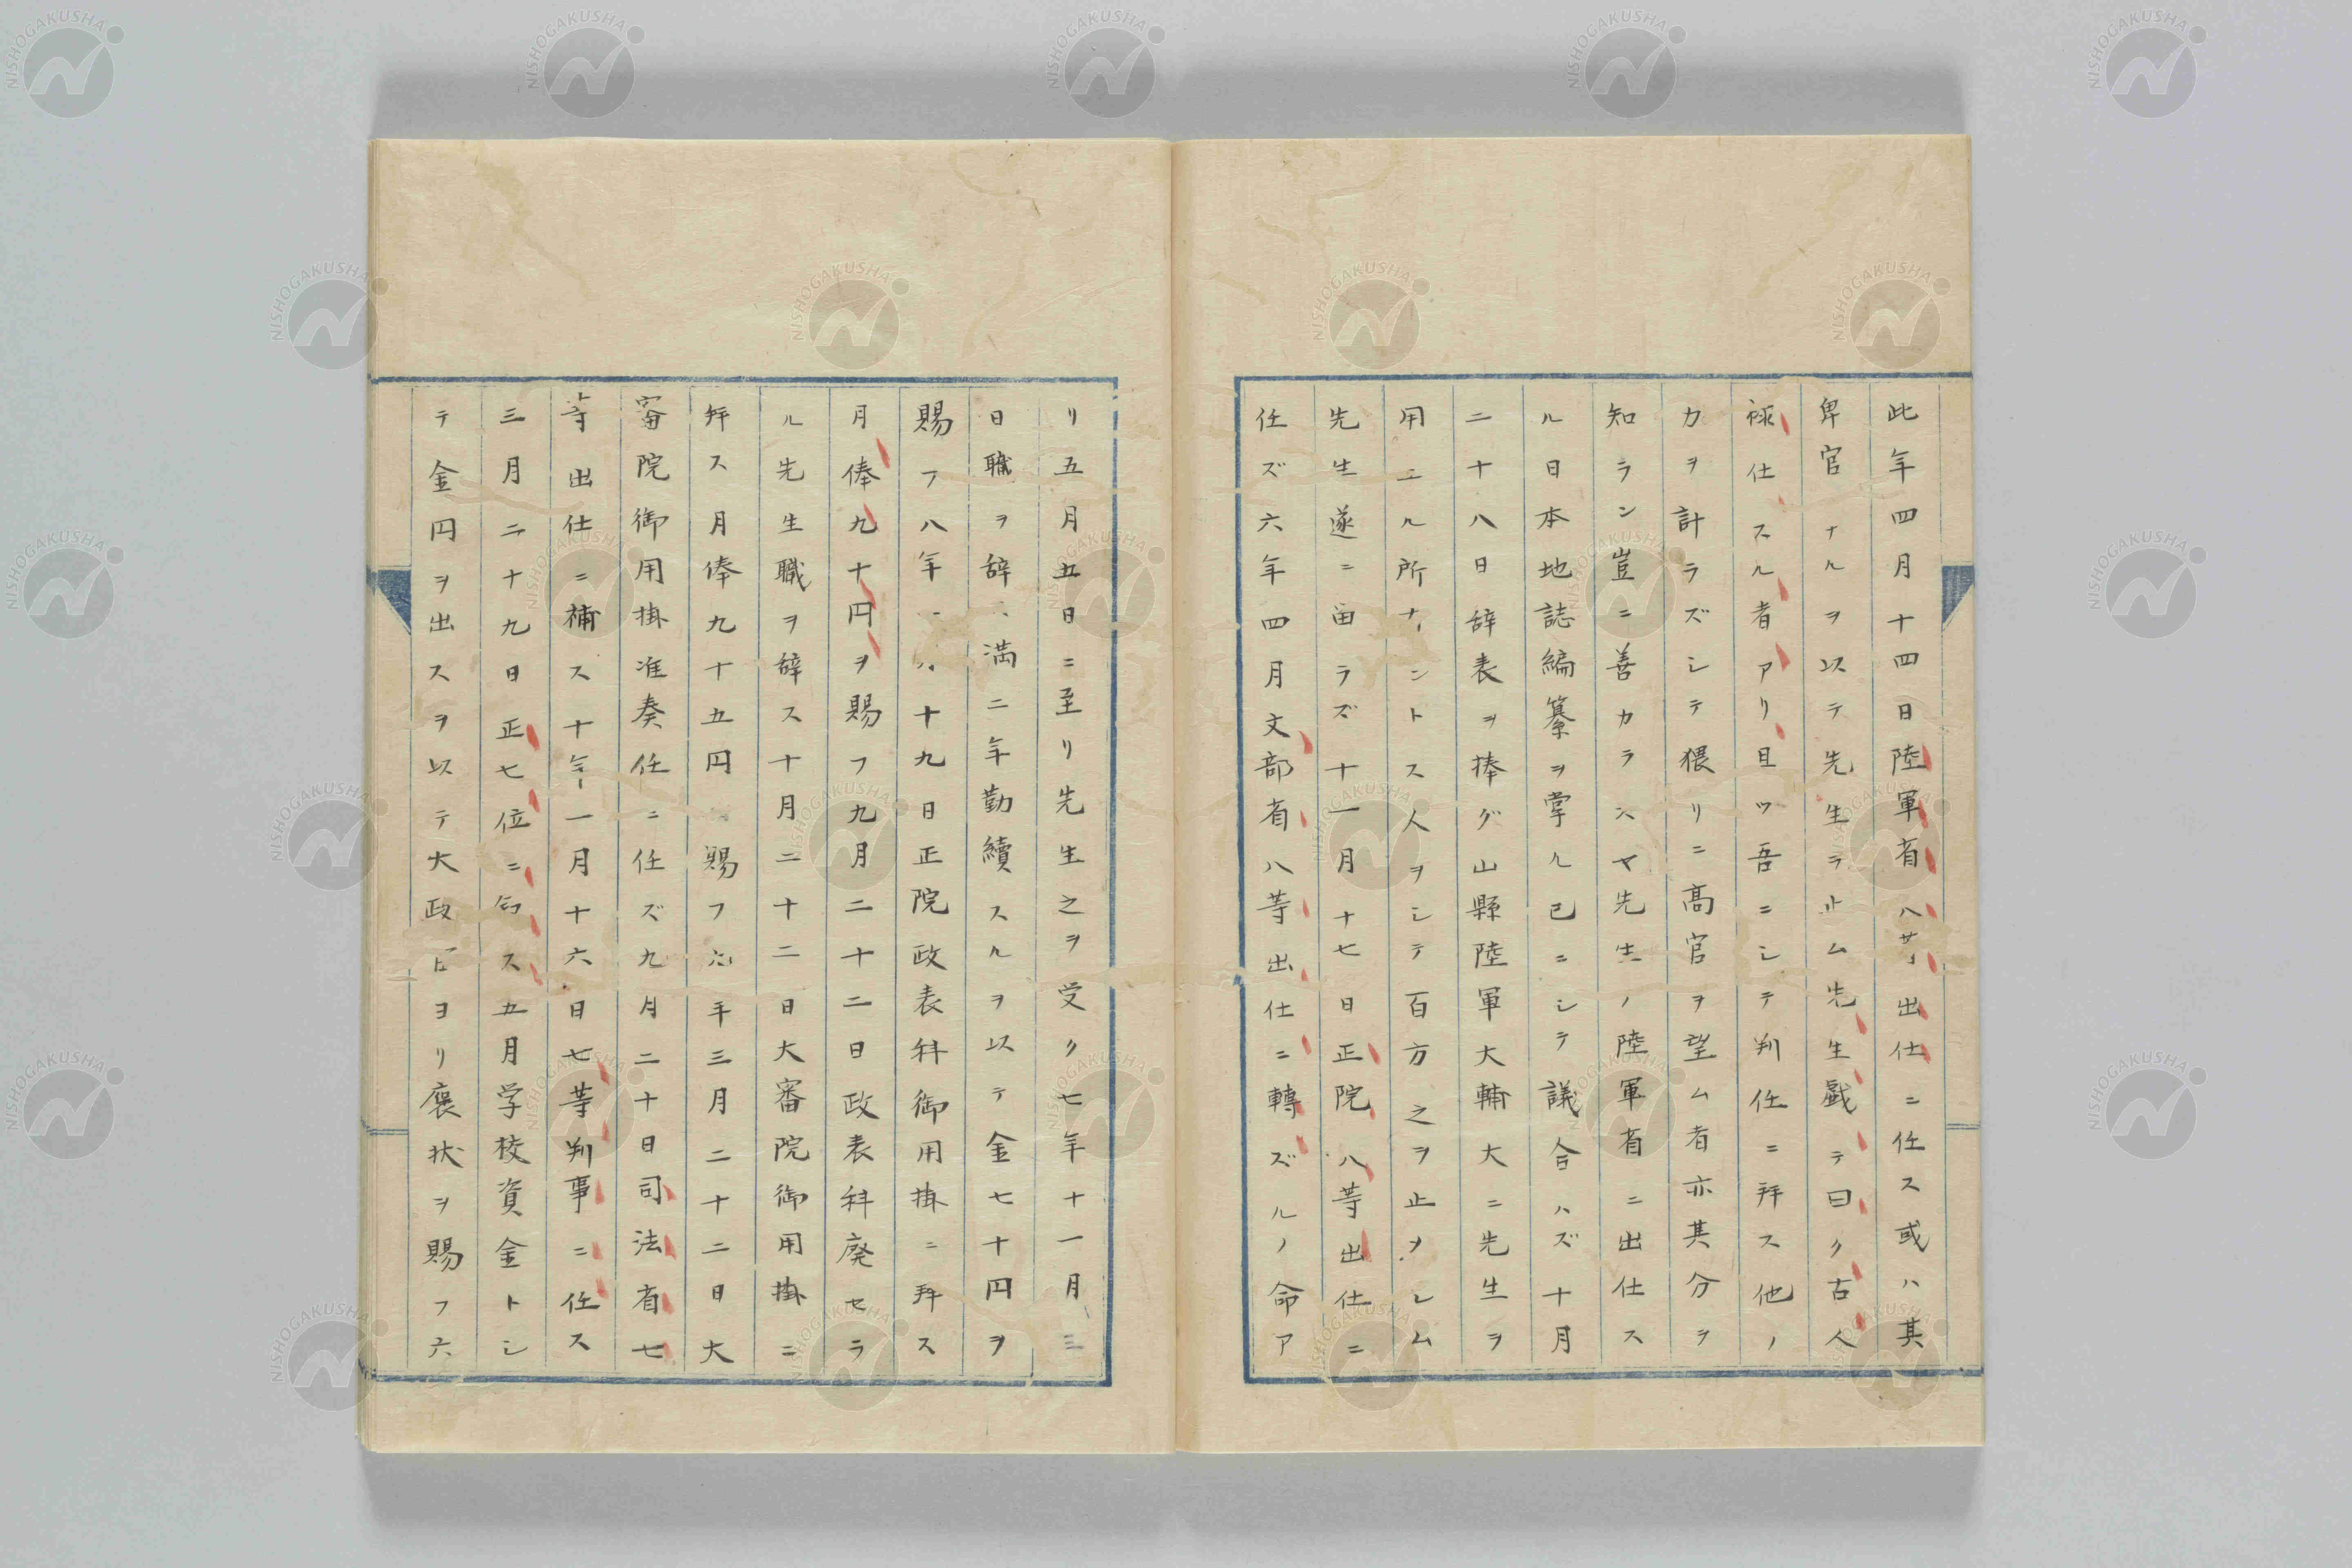 此年四月十四日陸軍省八等出仕ニ任ス或ハ其
卑官ナルヲ以テ先生ヲ止ム先生戯テ曰ク古人
禄仕スル者アリ且ツ吾ニシテ判任ニ拜ス他ノ
力ヲ計ラズシテ猥リニ高官ヲ望ム者亦其分ヲ
知ラン豈ニ善カラスヤ先生ノ陸軍省ニ出仕ス
ル日本地誌編纂ヲ掌ル已ニシテ議合ハズ十月
二十八日辞表ヲ捧グ山縣陸軍大輔大ニ先生ヲ
用エル所ナランントス人ヲシテ百方之ヲ止メシム
先生遂ニ留ラズ十一月十七日正院八等出仕ニ
任ズ六年四月文部省八等出仕ニ轉ズルノ命ア
リ五月五日ニ至リ先生之ヲ受ク七年十一月三
日職ヲ辞ス満二年勤續スルヲ以テ金七十円ヲ
賜フ八年一月十九日正院政表科御用掛ニ拜ス
月俸九十円ヲ賜フ九月二十二日政表科廃セラ
ル先生職ヲ辞ス十月二十二日大審院御用掛ニ
拜ス月俸九十五円賜フ九年三月二十二日大
審院御用掛准奏任ニ任ズ九月二十日司法省七
等出仕ニ補ス十年一月十六日七等判事ニ任ス
三月二十九日正七位ニ叙ス五月学校資金トシ
テ金円ヲ出スヲ以テ大政官ヨリ褒状ヲ賜フ六
NISHOGAKUSHA